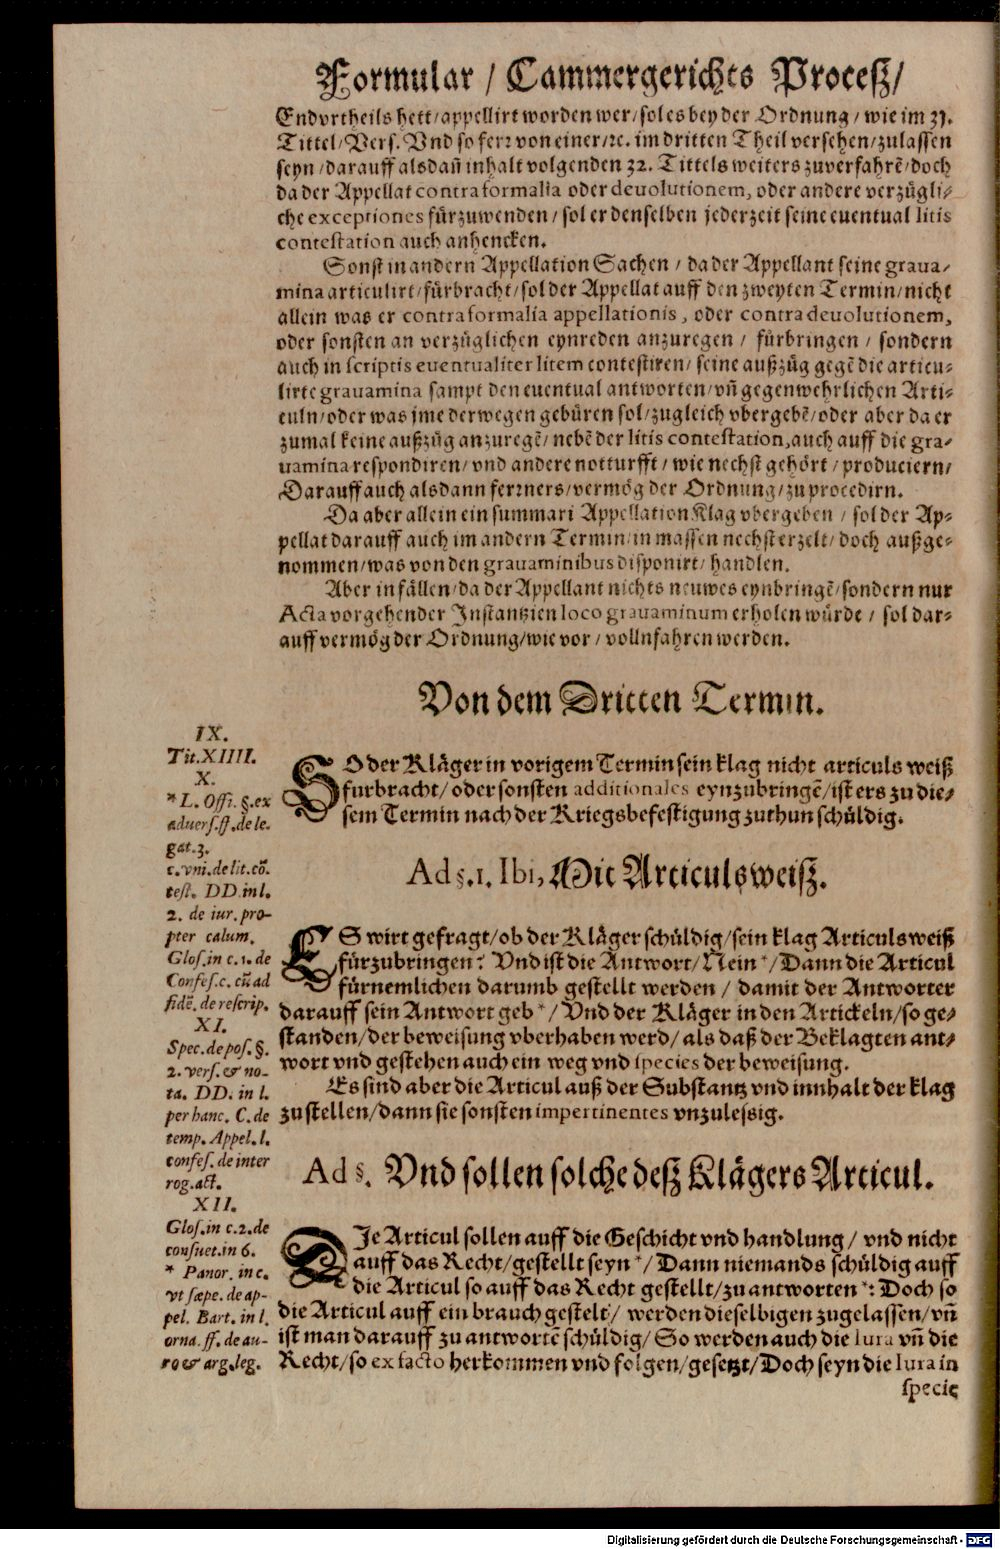 Formular / Cammergerichts Proceß/
Endvrtheils hett/appellirt worden wer/sol es bey der Ordnung/ wie im 31.
Tittel/Vers. Vnd so ferr von einer/ꝛc. im dritten Theil versehen/zulassen
seyn/darauff alsdañ inhalt volgenden 32. Tittels weiters zuverfahrẽ/doch
da der Appellat contra formalia oder deuolutionem, oder andere verzügli-
che exceptiones fürzuwenden/ sol er denselben jederzeit seine euentual litis
contestation auch anhencken.
Sonst in andern Appellation Sachen / da der Appellant seine graua-
mina articulirt/fürbracht/sol der Appellat auff den zweyten Termin/nicht
allein was er contra formalia appellationis, oder contra deuolutionem,
oder sonsten an verzüglichen eynreden anzuregen / fürbringen / sondern
auch in scriptis euentualiter litem contestiren/ seine außzüg gegẽ die articu-
lirte grauamina sampt den euentual antworten/vñ gegenwehrlichen Arti-
culn/oder was jme derwegen gebüren sol/zugleich vbergebẽ/oder aber da er
zumal keine außzüg anzuregẽ/ nebẽ der litis contestation, auch auff die gra-
uamina respondiren/ vnd andere notturfft/ wie nechst gehört/ produciern/
Darauff auch alsdann ferrners/vermög der Ordnung/zu procedirn.
Da aber allein ein summari Appellation Klag vbergeben / sol der Ap-
pellat darauff auch im andern Termin/in massen nechst erzelt/ doch außge-
nommen/was von den grauaminibus disponirt/ handlen.
Aber in fällen/da der Appellant nichts neuwes eynbringẽ/sondern nur
Acta vorgehender Instantzien loco grauaminum erholen würde / sol dar-
auff vermög der Ordnung/wie vor/ vollnfahren werden.
Von dem Dritten Termin.
IX.
Tit. XIIII.
X.
* L. Offi. §. ex
aduers. ff. de le.
gat. 3.
c. vni. de lit. cõ.
test. DD. in l.
2. de iur. pro-
pter calum.
Glos. in c. 1. de
Confes. c. cũ ad
fidẽ. de rescrip.
XI.
Spec. de pos. §.
2. vers. & no-
ta. DD. in l.
per hanc. C. de
temp. Appel. l.
confes. de inter
rog. act.
XII.
Glos. in c. 2. de
consuet. in 6.
* Panor. in c.
vt sæpe. de ap-
pel. Bart. in l.
orna. ff. de au-
ro & arg. leg.
SO der Kläger in vorigem Termin sein klag nicht articuls weiß
furbracht/ oder sonsten additionales eynzubringẽ/ist ers zu die-
sem Termin nach der Kriegsbefestigung zuthun schüldig.
Ad §. 1. Ibi, Mit Articuls weiß.
ES wirt gefragt/ob der Kläger schüldig/sein klag Articuls weiß
fürzubringen? Vnd ist die Antwort/Nein*/Dann die Articul
fürnemlichen darumb gestellt werden / damit der Antworter
darauff sein Antwort geb*/Vnd der Kläger in den Artickeln/so ge-
standen/der beweisung vberhaben werd/als daß der Beklagten ant-
wort vnd gestehen auch ein weg vnd species der beweisung.
Es sind aber die Articul auß der Substantz vnd innhalt der klag
zustellen/dann sie sonsten impertinentes vnzulessig.
Ad §. Vnd sollen solche deß Klägers Articul.
DIe Articul sollen auff die Geschicht vnd handlung/ vnd nicht
auff das Recht/gestellt seyn*/Dann niemands schüldig auff
die Articul so auff das Recht gestellt/zu antworten*: Doch so
die Articul auff ein brauch gestelt/ werden dieselbigen zugelassen/vñ
ist man darauff zu antwortẽ schüldig/ So werden auch die Iura vñ die
Recht/so ex facto herkommen vnd folgen/gesetzt/Doch seyn die Iura in
specie
Digitalisierung gefördert durch die Deutsche Forschungsgemeinschaft - DFG